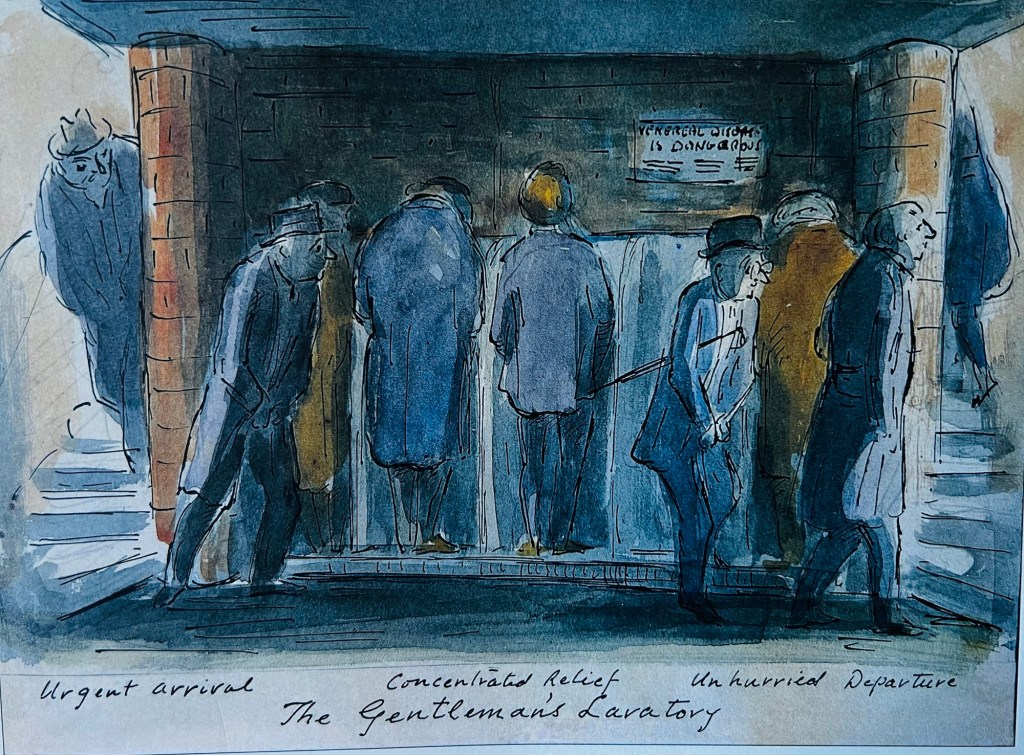 VENEREAL DISEASE
IS DANGEROUS
Urgent arrival Concentrated Relief Unhurried Departure
The Gentleman's Lavatory